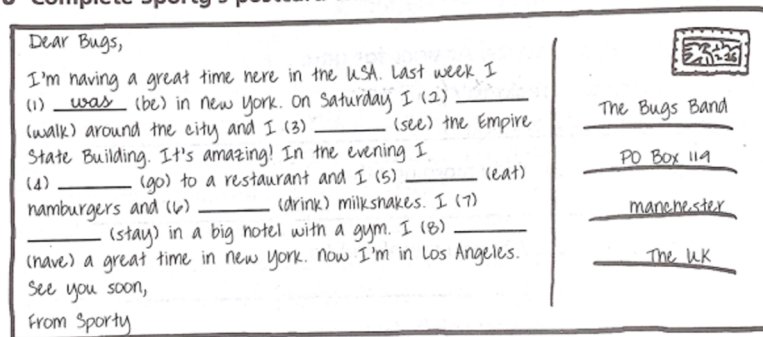 Dear Bugs,
I'm having a great time here in the USA. Last week I
(1) was (be) in New York. On Saturday I (2) ________
(walk) around the city and I (3) ________ (see) the Empire
State Building. It's amazing! In the evening I
(4) ________ (go) to a restaurant and I (5) ________ (eat)
hamburgers and (6) ________ (drink) milkshakes. I (7)
________ (stay) in a big hotel with a gym. I (8) ________
(have) a great time in New York. Now I'm in Los Angeles.
See you soon,
From Sporty
The Bugs Band
PO Box 119
Manchester
The UK